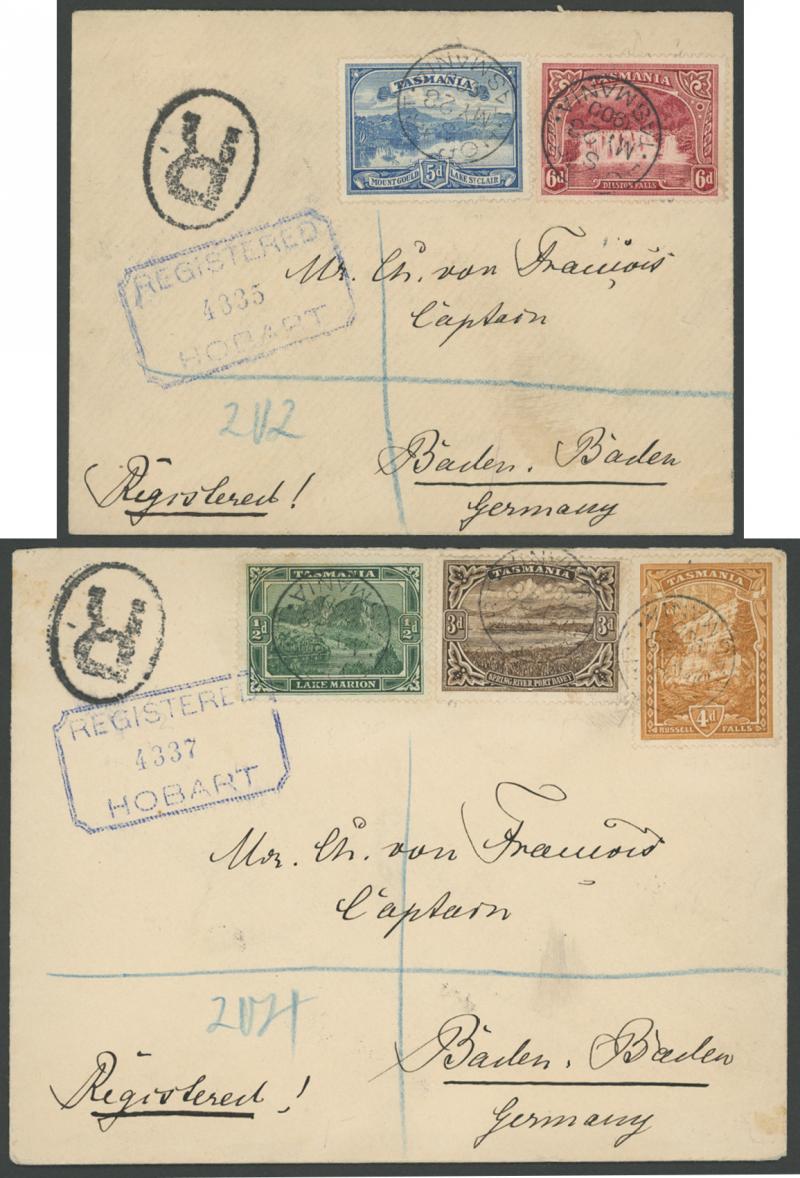 TASMANIA
MOUNT GOULD 5d LAKE ST CLAIR
TASMANIA
6d DILSTON FALLS 6d
TASMANIA
MY 22
TASMANIA
MY 22
R
REGISTERED
4335
HOBART
Mr. Ch. von François
Captain
2112
Baden. Baden
Registered!
Germany
TASMANIA
½d ½d
LAKE MARION
TASMANIA
3d 3d
SPRING RIVER PORT DAVEY
TASMANIA
4d
RUSSELL FALLS
R
REGISTERED
4337
HOBART
Mr. Ch. von François
Captain
Baden. Baden
Registered!
Germany